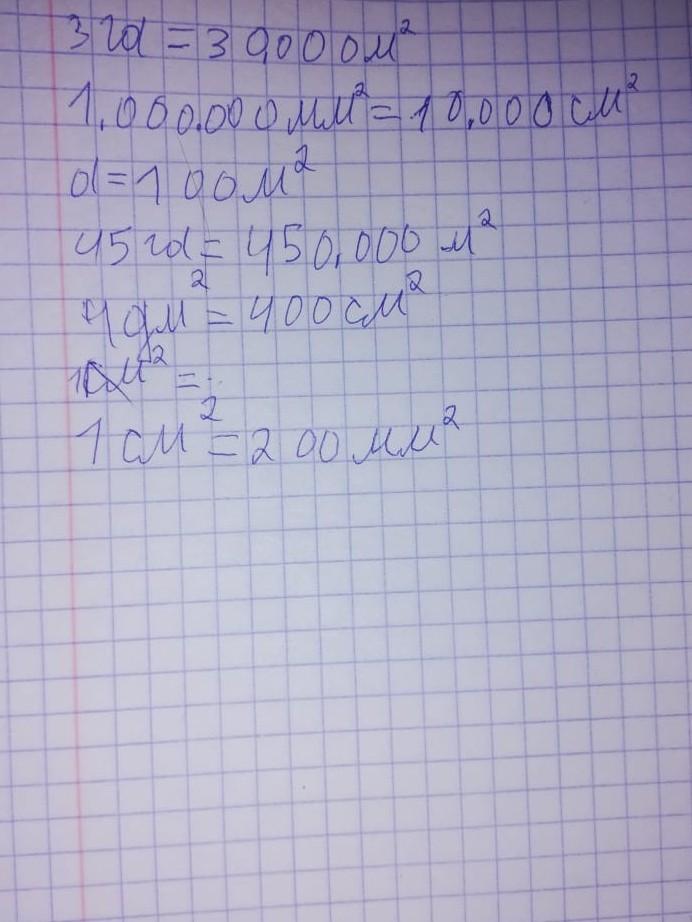 3 га = 30,000 м²
1.000.000 мм² = 10.000 см²
а = 100 м²
45 га = 450.000 м²
4 дм² = 400 см²
1 см² = 200 мм²